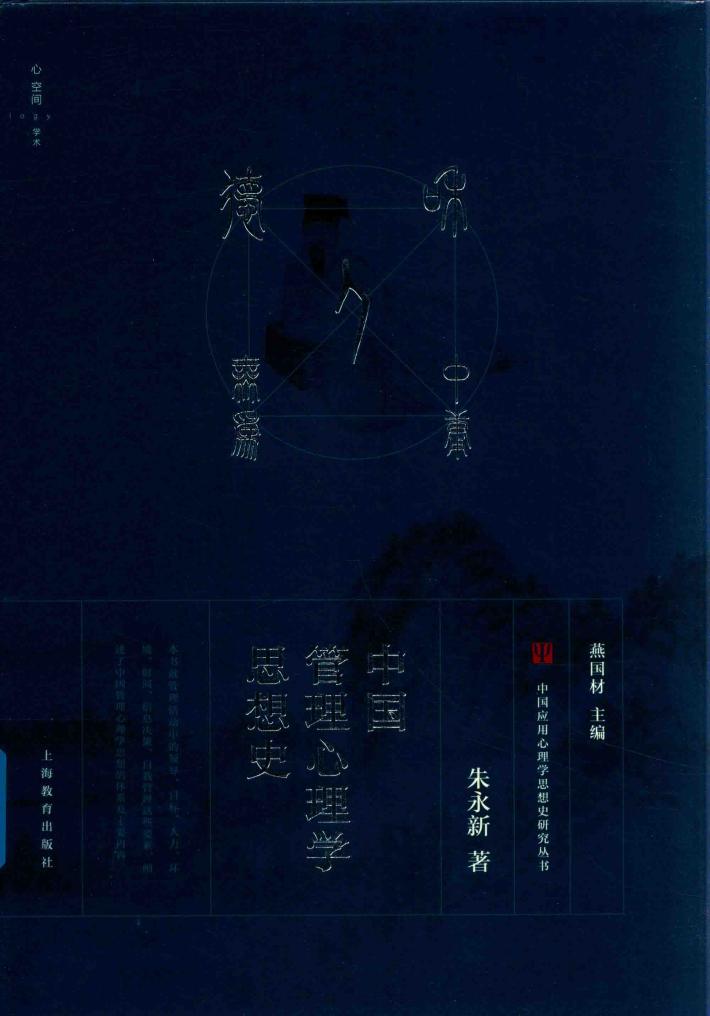 心空间
logy
学术
德
和
人
無爲
中庸
燕国材 主编
中国应用心理学思想史研究丛书
朱永新 著
中国
管理心理学
思想史
本书就管理活动中的领导、目标、人力、环
境、时间、信息决策、自我管理这些要素，阐
述了中国管理心理学思想的体系及主要内容
上海教育出版社